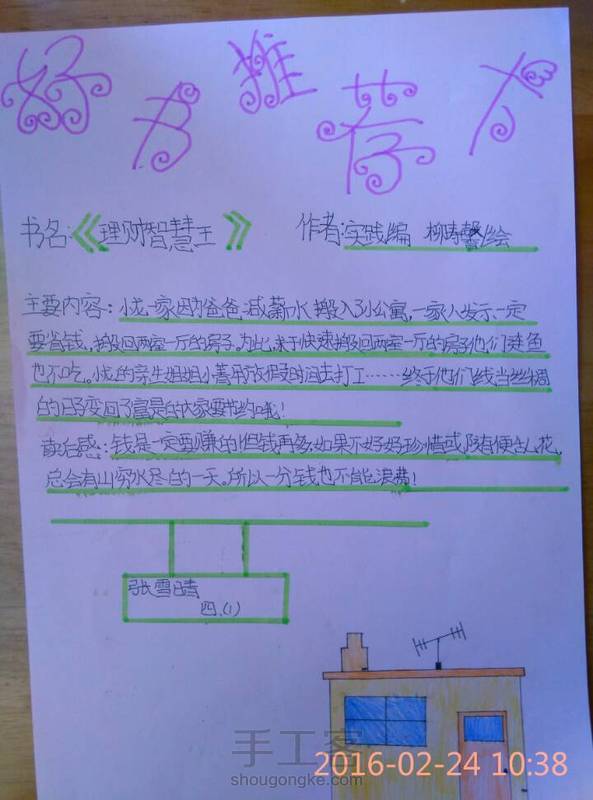 好书推荐卡
书名:《理财智慧王》 作者:实践/编 柳寿馨/绘
主要内容:小龙一家因为爸爸减薪水,搬入了小公寓,一家人发示一定
要省钱,搬回两室一厅的房子。为此,来了快速搬回两室一厅的房子他们连鱼
也不吃。小龙的亲生姐姐小菁平放假要时间去打工……终于他们
的日子变回了富是的大家要节约哦!
读后感:钱是一定要赚的但钱再多如果不好好珍惜或随便乱花
总会有山穷水尽的一天。所以一分钱也不能浪费!
张雪晴
四、(1)
手工客
shougongke.com
2016-02-24 10:38